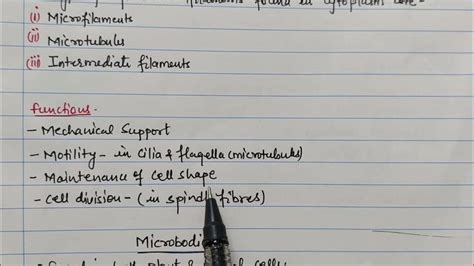 filaments found in cytoplasm are-
(i) Microfilaments
(ii) Microtubules
(iii) Intermediate filaments
functions -
- Mechanical Support
- Motility - in Cilia & flagella (microtubules)
- Maintenance of cell shape
- Cell division - (in spindle fibres)
Microbodi